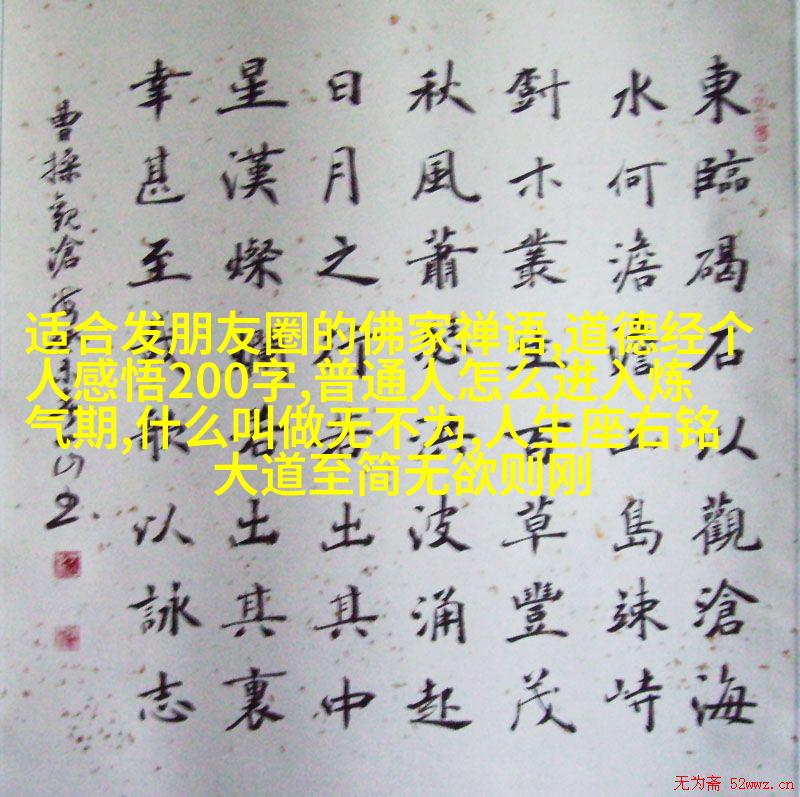 東臨碣石以觀滄海
水何澹澹山島竦峙
尌木叢生百草豐茂
秋風蕭瑟洪波涌起
日月之行若出其中
星漢燦爛若出其裏
幸甚至哉歌以詠志
曹操觀滄海
适合发朋友圈的佛家禅语,道德经个
人感悟200字,普通人怎么进入炼
气期,什么叫做无不为,人生座右铭
大道至简无欲则刚
无为斋 52wwz.cn